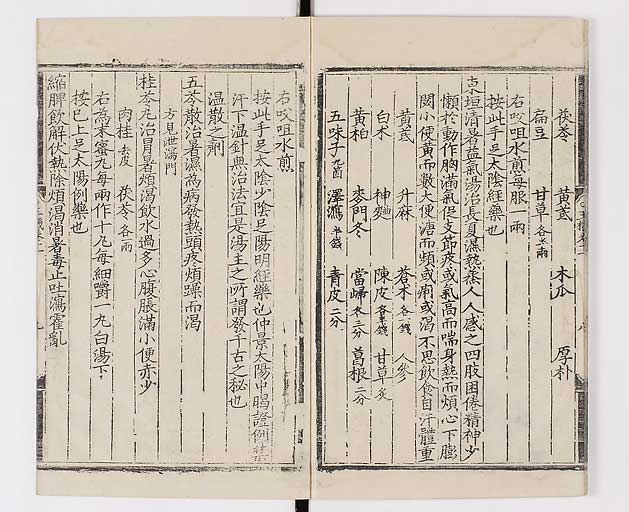 茯苓 黄茋 木瓜 厚朴
扁豆 甘草各半兩
右㕮咀水煎每服一兩
按此手足太陰經藥也
東垣清暑益氣湯治長夏濕熱蒸人人感之四肢困倦精神少
懶於動作胸滿氣促支節疼或氣高而喘身熱而煩心下膨
閟小便黄而數大便溏而頻或痢或渴不思飲食自汗體重
黄茋 升麻 蒼术各一錢 人參
白术 神麯 陳皮各半錢 甘草炙
黄柏 麥門冬 當歸各三分 葛根二分
五味子九箇 澤瀉半錢 青皮二分
右㕮咀水煎
按此手足太陰少陰足陽明經藥也仲景太陽中暍證例禁
汗下温針無治法宜是湯主之所謂發千古之秘也
温散之劑
五苓散治暑濕為病發熱頭疼煩躁而渴
方見泄瀉門
桂苓丸治冒暑煩渴飲水過多心腹脹滿小便赤少
肉桂去皮 茯苓各兩
右為末蜜丸每兩作十丸每細嚼一丸白湯下
按已上足太陽例藥也
縮脾飲解伏熱除煩渴消暑毒止吐瀉霍亂